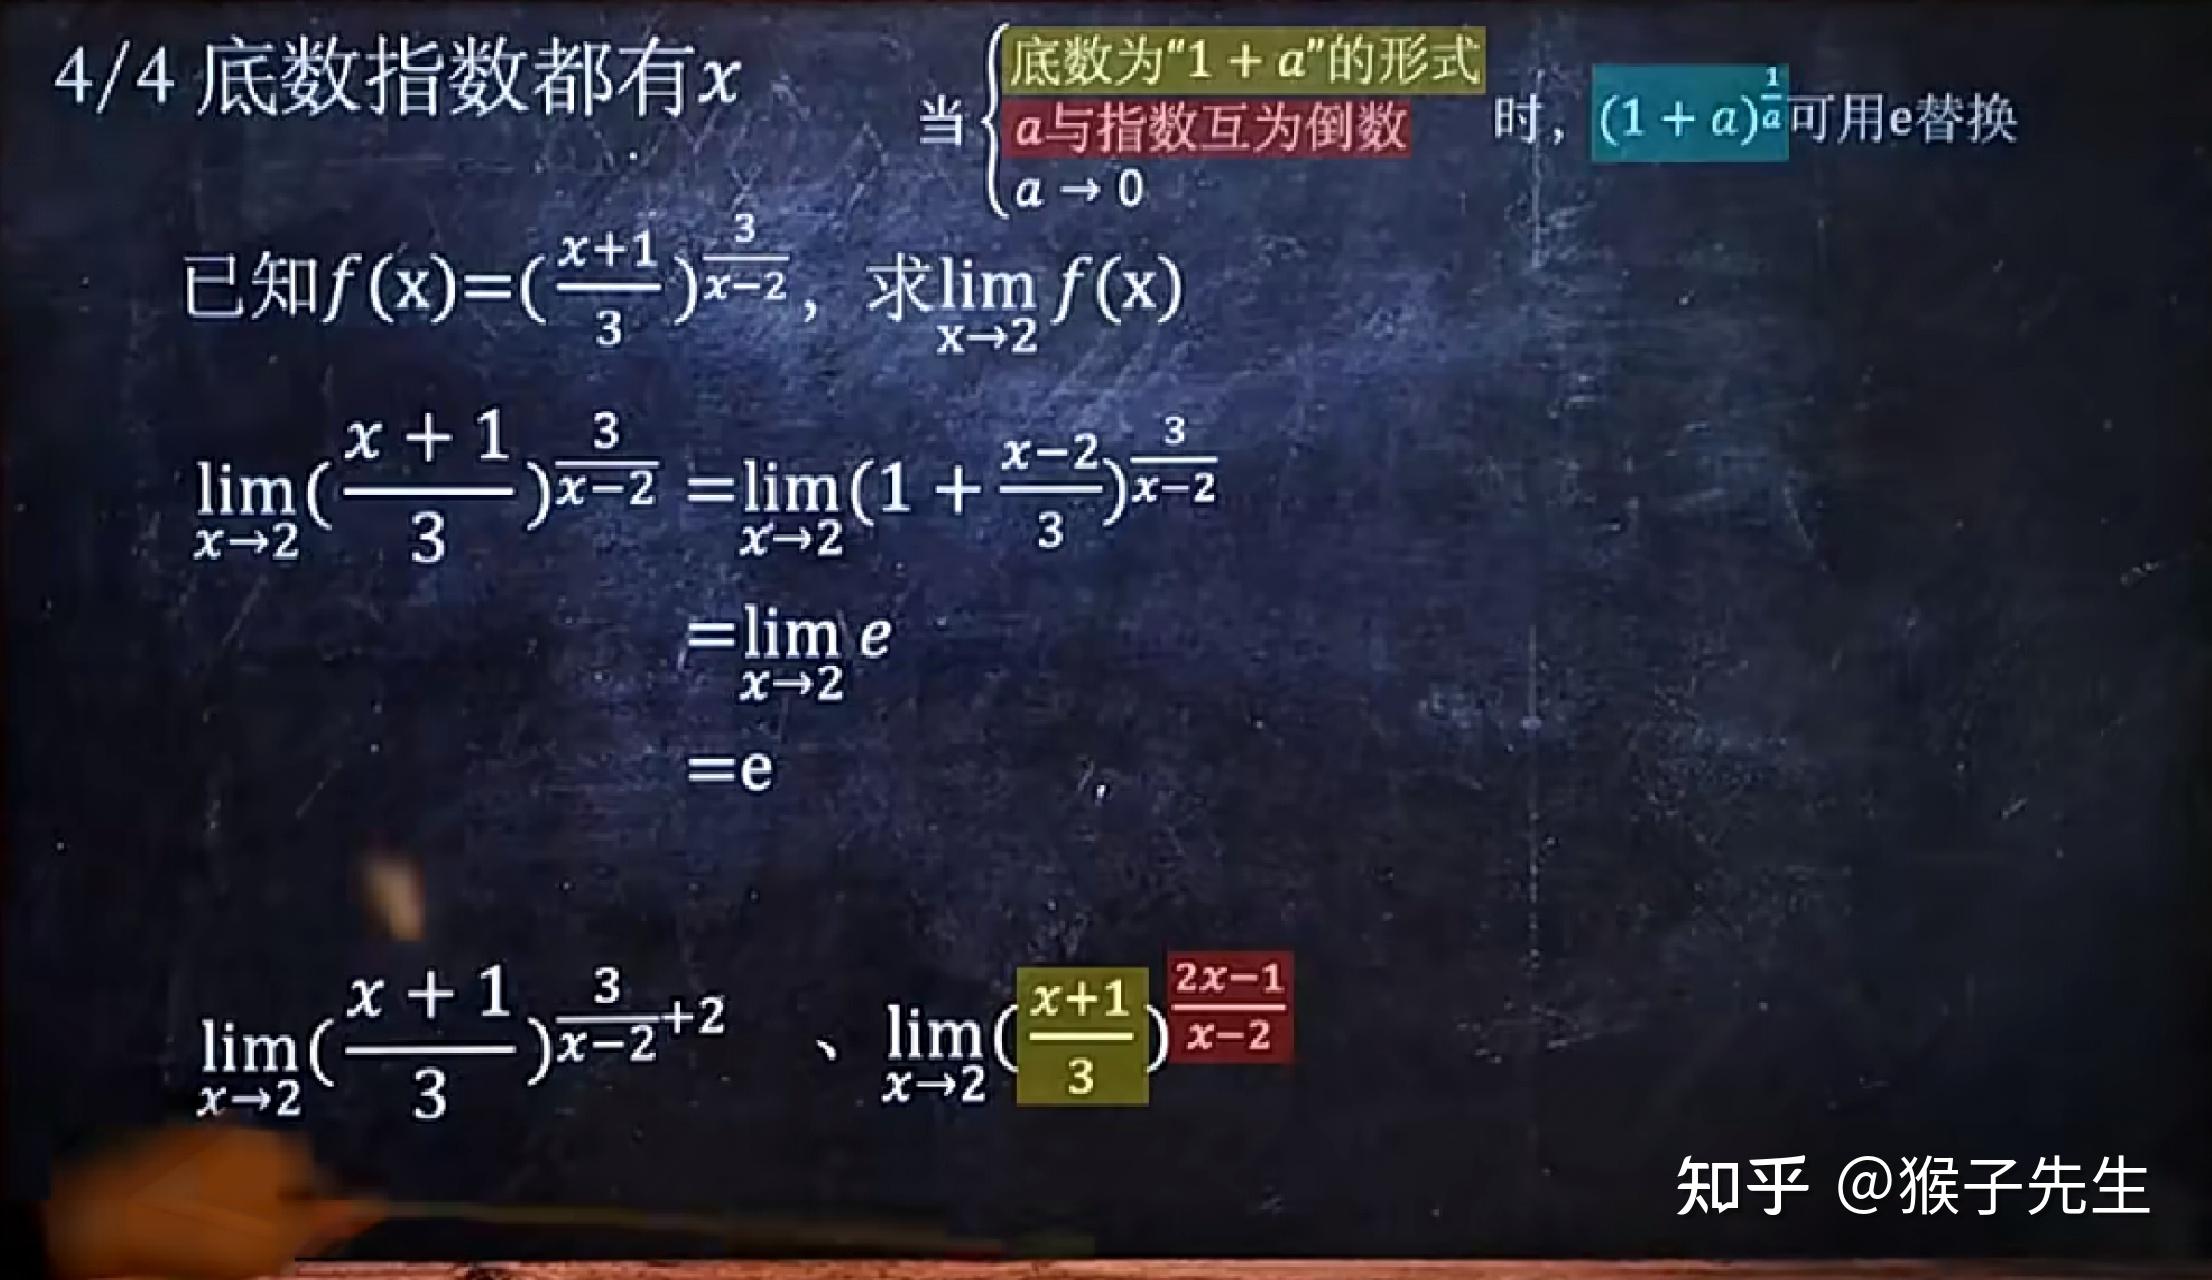 4/4 底数指数都有x
当{底数为“1 + a”的形式
a与指数互为倒数
a → 0
时，(1 + a)^(1/a)可用e替换
已知f(x)=((x+1)/3)^(3/(x−2))，求lim_(x→2) f(x)
lim_(x→2)((x + 1)/3)^(3/(x−2)) =lim_(x→2)(1 + (x−2)/3)^(3/(x−2))
=lim_(x→2) e
=e
lim_(x→2)((x + 1)/3)^(3/(x−2)+2) 、lim_(x→2)((x+1)/3)^((2x−1)/(x−2))
知乎 @猴子先生